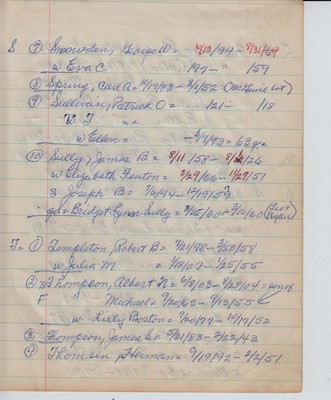 S (7) Snowden, George W = 4/10/94 - 7/31/69
w Eva C 197 - 159
(8) Spring, Carl A = 10/19/93 - 3/1/52 (McGuire lot)
(9) Sullivan, Patrick O = 121 - 118
W J
w Ellen = - 5/7/93 = 63 yrs
(10) Sully, James B = 8/11/58 - 8/12/26
w Elizabeth Fenton = 3/29/66 - 1/27/51
s Joseph B = 7/6/94 - 12/19/59
gd = Bridget Lynn Sully = 2/15/60 - 3/10/60
T = (1) Templeton, Robert B = 7/21/98 - 3/23/58
w Julia M = 1/18/07 - 1/25/55
(2) Thompson, Albert N = 6/8/03 - 7/28/04 = son of
F Michael = 9/20/63 - 9/13/55
w - Lilly Boston = 7/20/77 - 10/17/52
(3) Thompson, James S = 5/31/83 - 2/22/43
(4) Thomsen, Herman = 9/17/92 - 2/2/51